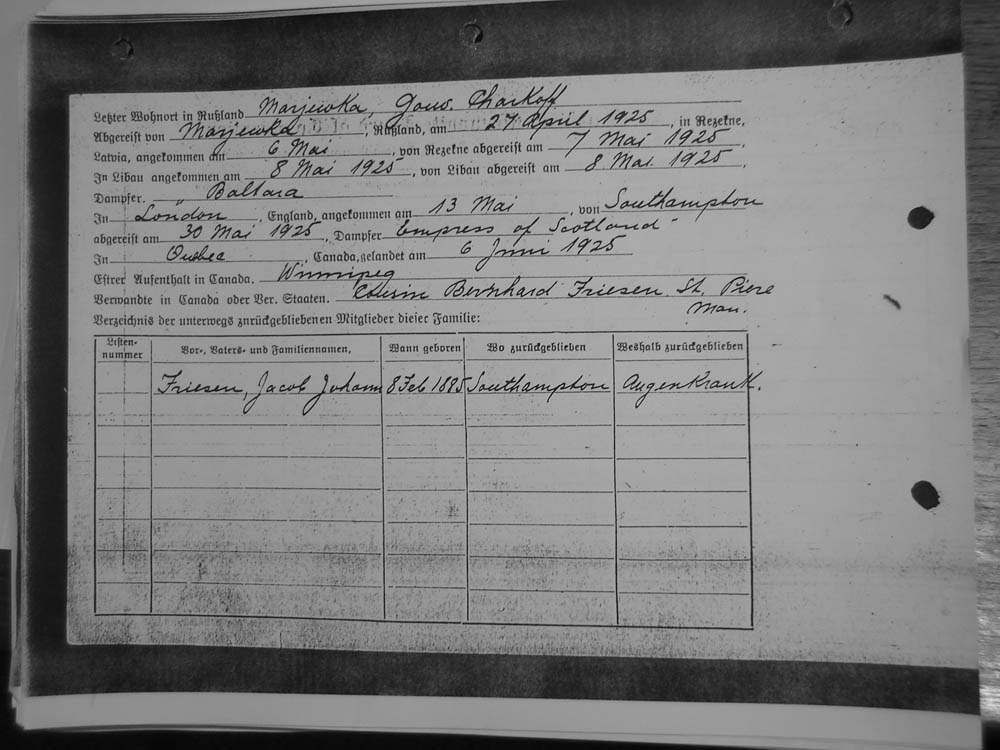 Letzter Wohnort in Rußland Marjewka, Gouv. Charkoff
Abgereist von Marjewka, Rußland, am 27 April 1925, in Rezekne,
Latvia, angekommen am 6 Mai, von Rezekne abgereist am 7 Mai 1925.
In Libau angekommen am 8 Mai 1925, von Libau abgereist am 8 Mai 1925.
Dampfer. „ Baltara
In London, England, angekommen am 13 Mai, von Southampton
abgereist am 30 Mai 1925, Dampfer Empress of Scotland"
In Quebec, Canada, gelandet am 6 Juni 1925
Estrer Aufenthalt in Canada. Winnipeg
Verwandte in Canada oder Ver. Staaten. Cousin Bernhard Friesen. St. Piere
Man.
Verzeichnis der unterwegs zurückgebliebenen Mitglieder dieser Familie:
Listen-nummer Vor-, Vaters- und Familiennamen, Wann geboren Wo zurückgeblieben Weshalb zurückgeblieben
Friesen, Jacob Johann 8 Feb 1885 Southampton Augenkrank.